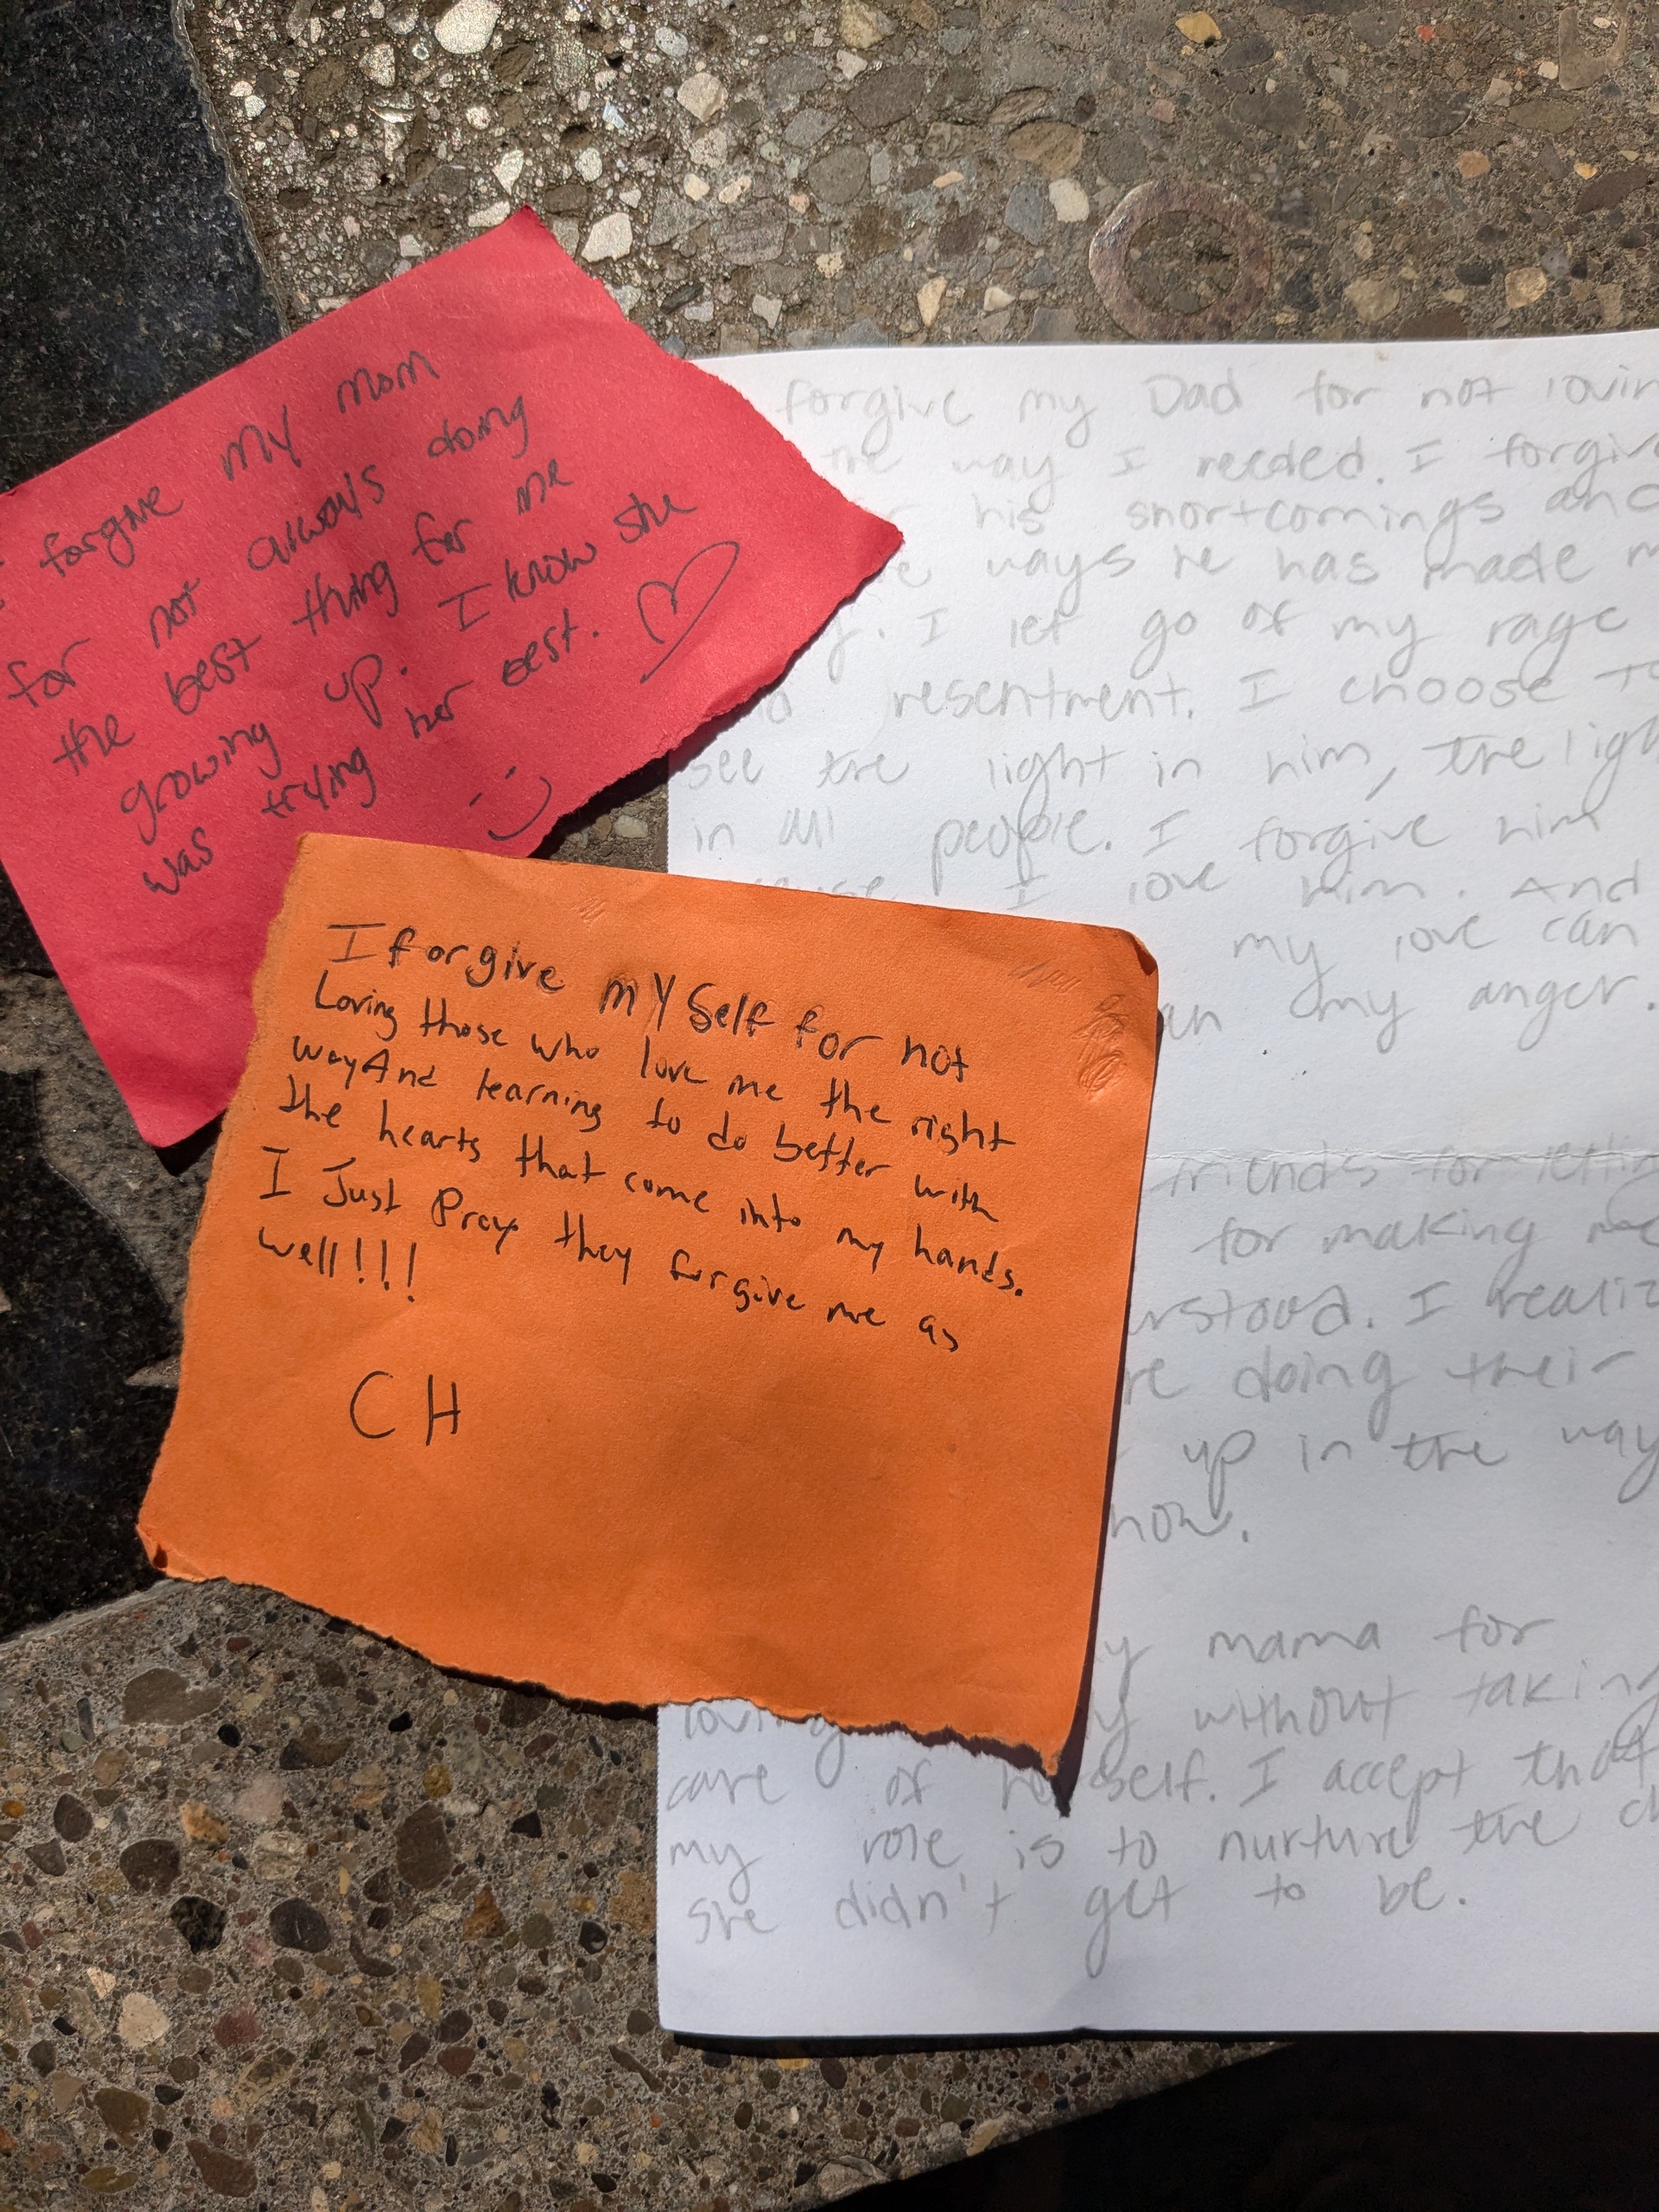 forgive my mom
for not always doing
the best thing for me
growing up. I know she
was trying her best.
I forgive mYSelf for not
Loving those who love me the right
wayAnd learning to do better with
the hearts that come into my hands.
I Just Pray they forgive me as
well!!!
CH
forgive my Dad for not
the way I needed. I
his shortcomings and
ways he has made
I let go of my rage
resentment. I choose
see the light in him, the
in all people. I forgive him
I love him. And
my love can
my anger.
friends for
for making me
I
doing their
up in the way
mama for
loving without taking
care of self. I accept that
my role is to nurture the
she didn't get to be.